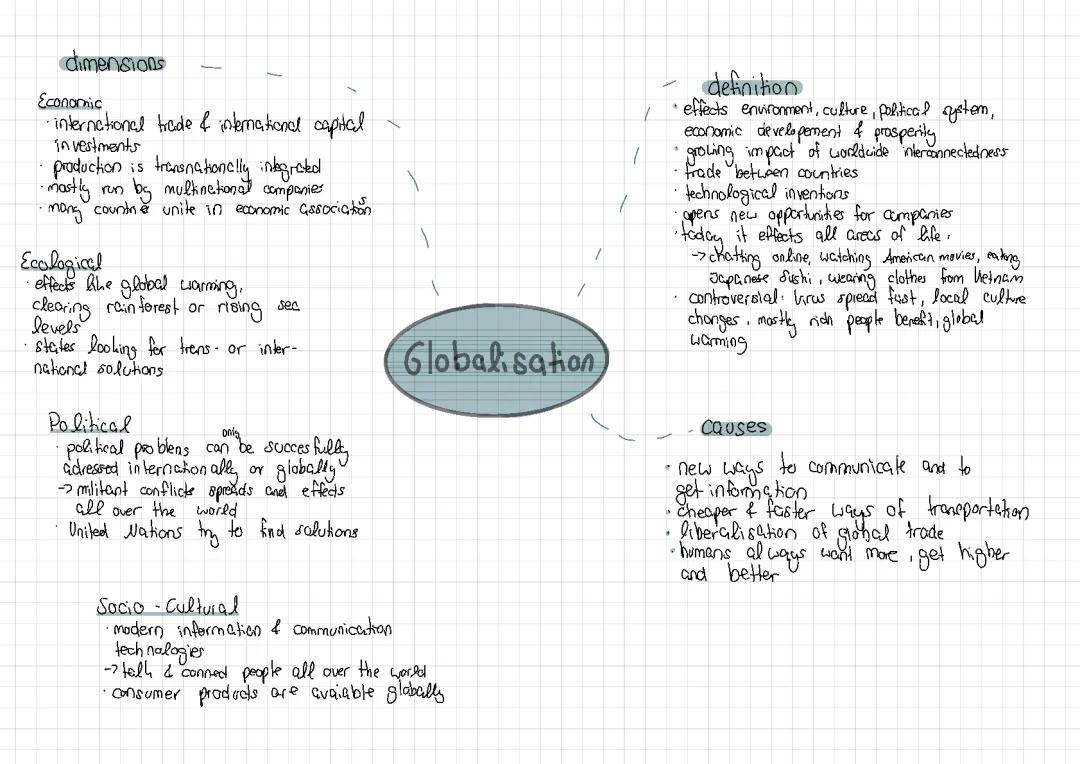 dimensions
Economic
· international trade & international capital
investments
· production is transnationally integrated
· mostly run by multinational companies
· many countries unite in economic association
Ecological
· effects like global warming,
clearing rainforest or rising sea
levels
· states looking for trans- or inter-
national solutions
Political
· political problems can only be succesfully
adressed internationally or globally
-> militant conflicts spreads and effects
all over the world
· United Nations try to find solutions
Socio - Cultural
· modern information & communication
technologies
-> talk & connect people all over the world
· consumer products are avaiable globally
Globalisation
definition
· effects environment, culture, political system,
economic developement & prosperity
· growing impact of worldwide interconnectedness
· trade between countries
· technological inventions
· opens new opportunities for companies
· today it effects all areas of life:
-> chatting online, watching American movies, eating
Japanese Sushi, wearing clothes from Vietnam
· controversial: Virus spread fast, local culture
changes, mostly rich people benefit, global
warming
causes
· new ways to communicate and to
get information
· cheaper & faster ways of transportation
· liberalisation of global trade
· humans always want more, get higher
and better